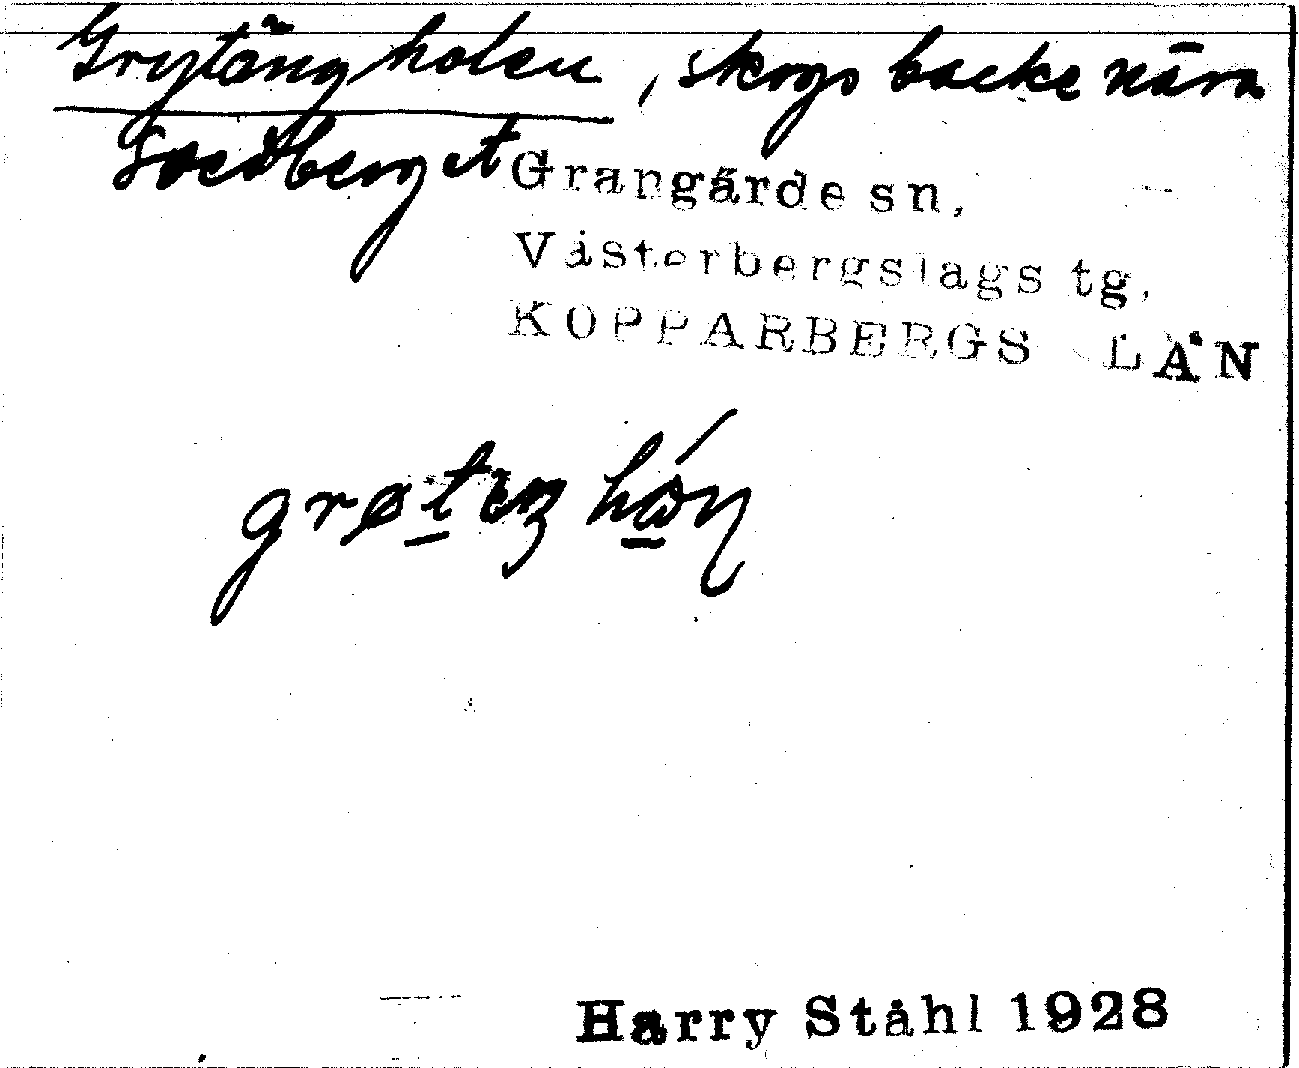 Grytängkolen, skogsbacke nära
Svedberget
Grangärde sn,
Västerbergslags tg,
KOPPARBERGS LÄN
Harry Ståhl 1928